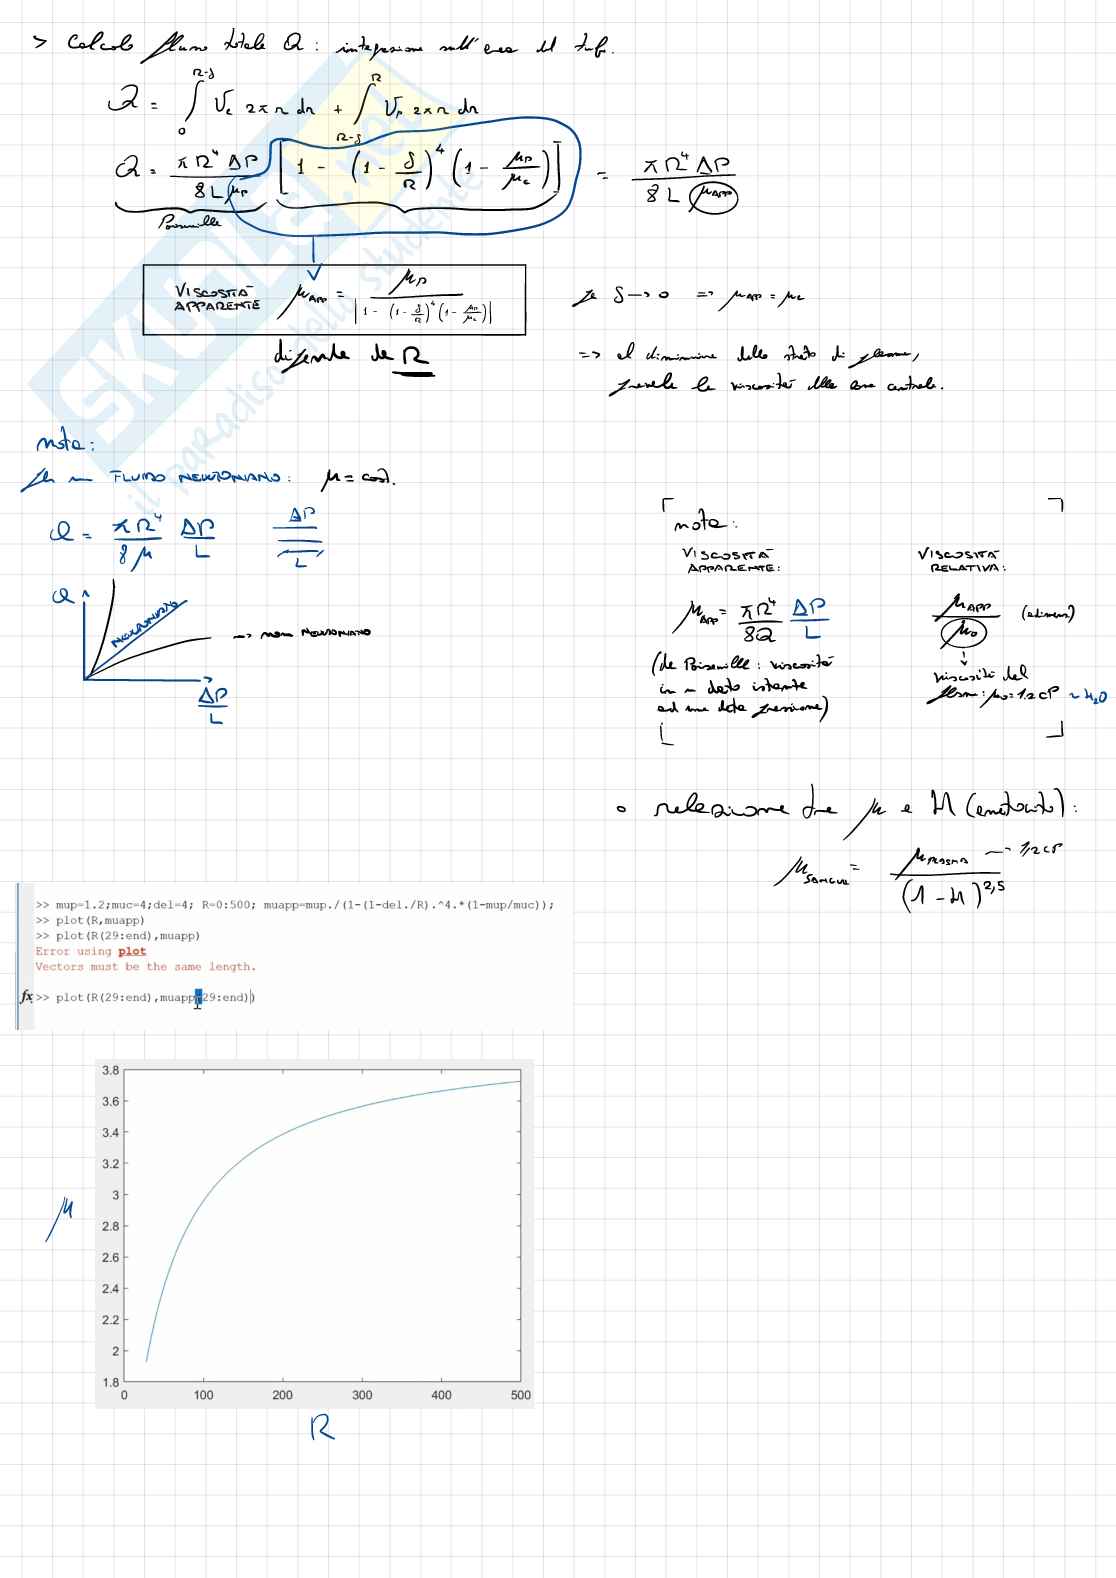 > Calcolo flusso totale Q : integrazione sull'area del tubo.
Q = ∫₀^{R-δ} V_c 2π r dr + ∫_{R-δ}^{R} V_p 2π r dr
Q = π R⁴ ΔP / 8 L μ_P [1 - (1 - δ/R)⁴ (1 - μ_P/μ_c)] = π R⁴ ΔP / 8 L μ_APP
Poiseuille
VISCOSITÀ APPARENTE μ_APP = μ_P / [1 - (1 - δ/R)⁴ (1 - μ_P/μ_c)]
se δ → 0 => μ_APP = μ_c
dipende da R
=> al diminuire dello strato di plasma,
prevale la viscosità della zona centrale.
nota:
Per un FLUIDO NEWTONIANO: μ = cost.
Q = π R⁴ / 8 μ ΔP / L
ΔP
L
Q
NEWTONIANO
→ non NEWTONIANO
ΔP / L
nota:
VISCOSITÀ APPARENTE:
μ_APP = π R⁴ / 8Q ΔP / L
(da Poiseuille: viscosità
in un dato istante
ad una data pressione)
VISCOSITÀ RELATIVA:
μ_APP / μ_0 (adimens)
viscosità del
plasma: μ_0 = 1.2 cP ~ H₂O
o relazione tra μ e H (ematocrito):
μ_SANGUE = μ_PLASMA / (1 - H)^{2,5}
→ 1,2 cP
>> mup=1.2;muc=4;del=4; R=0:500; muapp=mup./(1-(1-del./R).^4.*(1-mup/muc));
>> plot(R,muapp)
>> plot(R(29:end),muapp)
Error using plot
Vectors must be the same length.
fx >> plot(R(29:end),muapp(29:end))
3.8
3.6
3.4
3.2
3
2.8
2.6
2.4
2.2
2
1.8
0 100 200 300 400 500
μ
R
SKUOLA.net
il paradiso dello studente